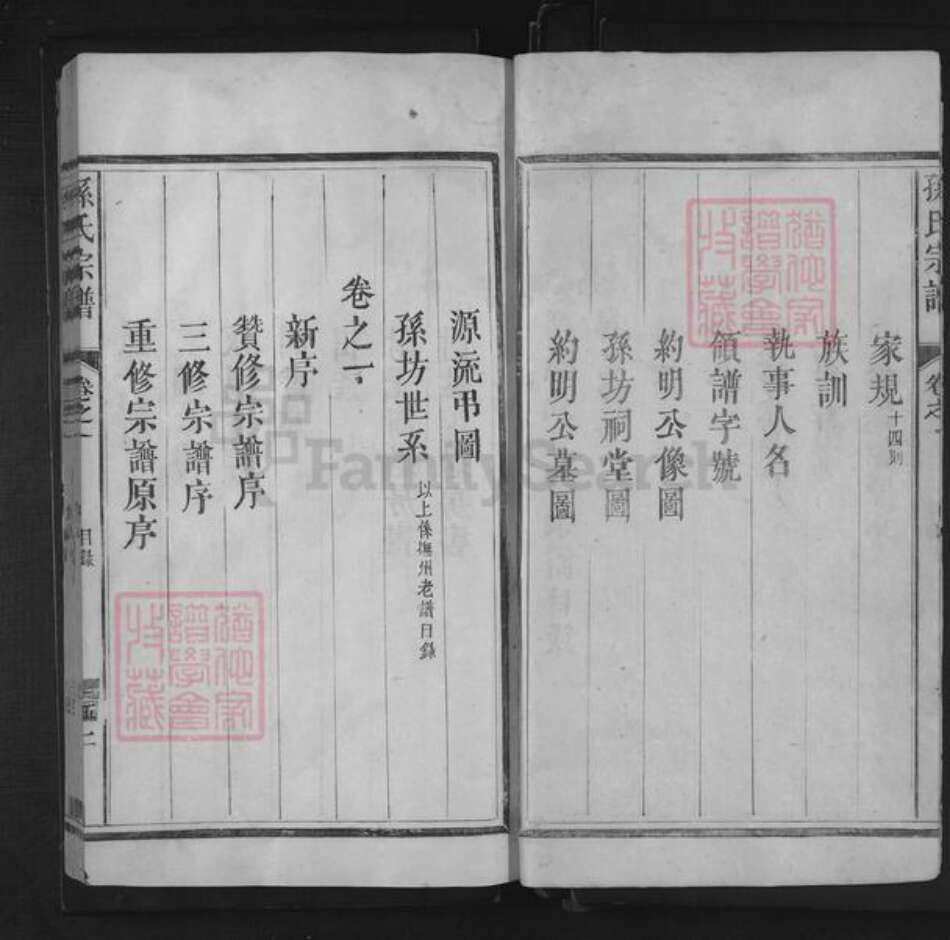 孫氏宗譜
卷之一
家規 十四則
族訓
執事人名
領譜字號
約明公像圖
孫坊祠堂圖
約明公墓圖
源流弔圖
孫坊世系 以上係撫州老譜目錄
卷之一
新序
贊修宗譜序
三修宗譜序
重修宗譜原序
孫氏宗譜
卷之一
目錄
二
譜學會
收藏
譜學會
收藏
FamilySearch